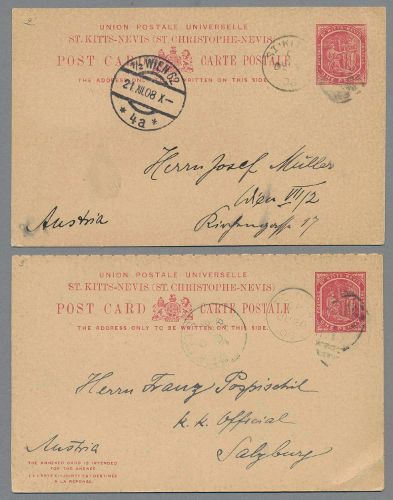 2
UNION POSTALE UNIVERSELLE
ST. KITTS-NEVIS (ST. CHRISTOPHE-NEVIS)
POST CARD CARTE POSTALE
THE ADDRESS ONLY TO BE WRITTEN ON THIS SIDE.
ST. KITTS
1/1 WIEN 62
21.XII.08.X-
* 4a *
Herrn Josef Müller
Wien VII/2
Austria
17
3
UNION POSTALE UNIVERSELLE
ST. KITTS-NEVIS (ST. CHRISTOPHE-NEVIS)
POST CARD CARTE POSTALE
THE ADDRESS ONLY TO BE WRITTEN ON THIS SIDE.
Herrn Franz Pospischil
k. k. Official
Austria
Salzburg
THE ANNEXED CARD IS INTENDED
FOR THE ANSWER
LA CARTE CI-JOINTE EST DESTINÉE
A LA RÉPONSE.